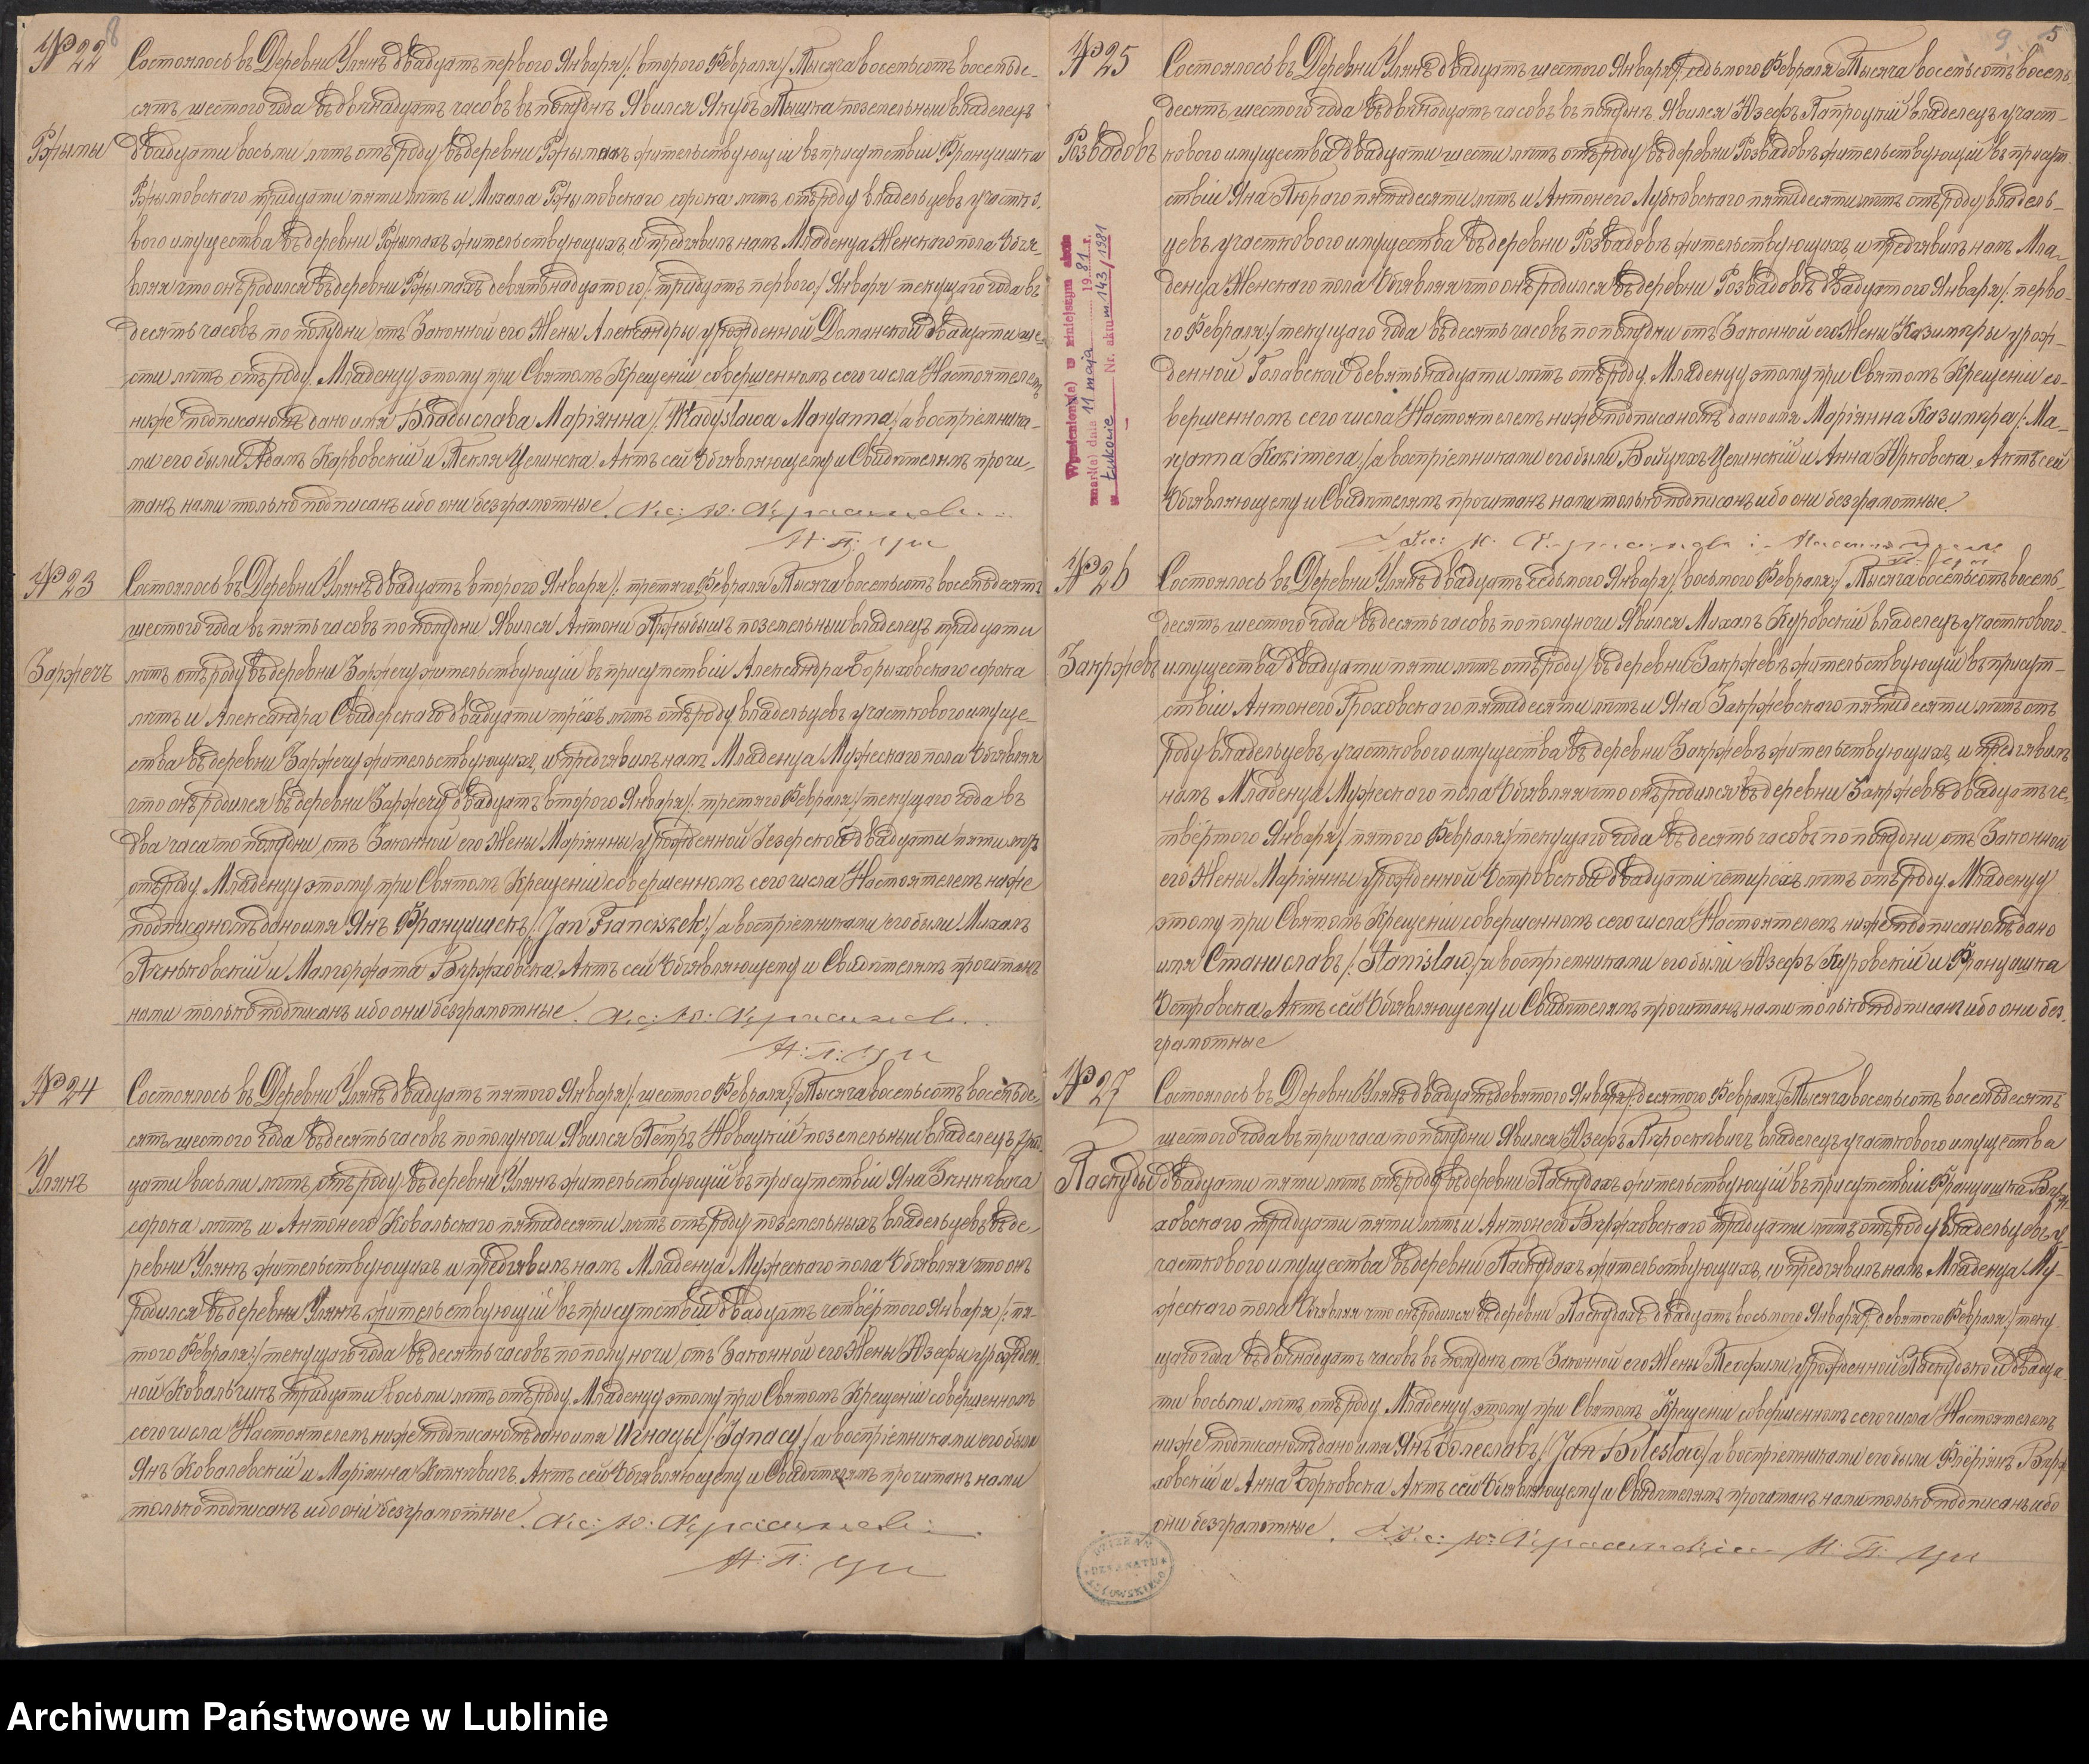 8
№ 22
Состоялось въ Деревни Улянъ двадцать первого Января /: второго Февраля :/ Тысяча восемьсотъ восемьде-
сятъ шестого года въ двѣнадцать часовъ въ полудне Явился Якубъ Тышка поземельный владелецъ
Рѣымы
двадцати восьми летъ отъ роду въ деревни жительствующій въ присутствіи Францишка
тридцати пяти летъ и Михала сорока летъ отъ роду владельцевъ участко-
вого имущества въ деревни жительствующихъ, и предъявилъ намъ Младенца Женскаго пола Объя-
вляя что онъ родился въ деревни девятнадцатого /: тридцать первого :/ Января текущаго года въ
десять часовъ по полудни отъ Законной его Жены Александры урожденной Доманской двадцати ше-
сти летъ отъ роду. Младенцу этому при Святомъ Крещеніи совершенномъ сего числа Настоятелемъ
ниже подписаномъ дано имя Владыслава Маріянна /: Władysława Maryanna :/ а воспріемника-
ми его были Адамъ Карвовскій и Текля Целинска Актъ сей Объявляющему и Свидѣтелямъ прочи-
танъ нами только подписанъ ибо они безграмотные.
Н: П: Ц: и
№ 23
Состоялось въ Деревни Улянъ двадцать второго Января /: третяго Февраля Тысяча восемьсотъ восемьдесятъ
шестого года въ пять часовъ по полудни Явился Антони поземельный владелецъ тридцати
Заржечъ
летъ отъ роду въ деревни Заржечу жительствующій въ присутствіи Александра Борыховского сорока
летъ и Александра Свидерскаго двадцати трёхъ летъ отъ роду владельцевъ участкового имуще-
ства въ деревни Заржечу жительствующихъ, и предъявилъ намъ Младенца Мужескаго пола Объявляя
что онъ родился въ деревни Заржечу двадцать второго Января /: третяго Февраля :/ текущаго года въ
два часа по полудни, отъ Законной его Жены Маріянны урожденной Езерской двадцати пяти летъ
отъ роду. Младенцу этому при Святомъ Крещеніи совершенномъ сего числа Настоятелемъ ниже
подписаномъ дано имя Янъ Францишекъ /: Jan Franciszek :/ а воспріемниками его были Михалъ
Пѣньковскій и Малгоржата Вержховска, Актъ сей Объявляющему и Свидѣтелямъ прочитанъ
нами только подписанъ ибо они безграмотные.
Н: П: Ц: и
№ 24
Состоялось въ Деревни Улянъ двадцать пятого Января /: шестого Февраля :/ Тысяча восемьсотъ восемьде-
сятъ шестого года въ десять часовъ по полуночи Явился Петръ Новацкій поземельный владелецъ три-
Улянъ
цати восьми летъ отъ роду въ деревни Улянъ жительствующій въ присутствіи Яна Зѣнкевича
сорока летъ и Антонего Ковальского пятидесяти летъ отъ роду поземельныхъ владельцевъ въ де-
ревни Улянъ жительствующихъ и предъявилъ намъ Младенца Мужескаго пола Объявляя что онъ
родился въ деревни Улянъ жительствующій въ присутствіи двадцать четвёртого Января /: пя-
того Февраля :/ текущаго года въ десять часовъ по полуночи, отъ Законной его Жены Юзефы урожден-
ной Ковальчикъ тридцати восьми летъ отъ роду. Младенцу этому при Святомъ Крещеніи совершенномъ
сего числа Настоятелемъ ниже подписаномъ дано имя Игнацы /: Ignacy :/ а воспріемниками его были
Янъ Ковалевскій и Маріянна Актъ сей Объявляющему и Свидѣтелямъ прочитанъ нами
только подписанъ ибо они безграмотные.
Н: П: Ц: и
9 5
№ 25
Состоялось въ Деревни Улянъ двадцать шестого Января /: седьмого Февраля Тысяча восемьсотъ восемь-
десятъ шестого года въ двѣнадцать часовъ въ полудне Явился Юзефъ Папроцкій владелецъ участ-
Розвадовъ
кового имущества двадцати шести летъ отъ роду въ деревни Розвадовъ жительствующій въ присут-
ствіи Яна пятидесяти летъ и Антонего Лубковского пятидесяти летъ отъ роду владель-
цевъ участкового имущества въ деревни Розвадовъ жительствующихъ, и предъявилъ намъ Мла-
денца Женскаго пола Объявляя что онъ родился въ деревни Розвадовъ двадцатого Января /: перво-
го Февраля :/ текущаго года въ десять часовъ по полудни отъ Законной его Жены Казимѣры урож-
денной Голавской девятнадцати летъ отъ роду. Младенцу этому при Святомъ Крещеніи со-
вершенномъ сего числа Настоятелемъ ниже подписаномъ дано имя Маріянна Казимѣра /: Ma-
ryanna Kazimera :/ а воспріемниками его были Войцѣхъ Целинскій и Анна Актъ сей
Объявляющему и Свидѣтелямъ прочитанъ нами только подписанъ ибо они безграмотные.
Wymieniony(a) w niniejszym akcie
zmarł(a) dnia 11 maja 1981 r.
w Łukowie Nr. aktu m 143/1981
№ 26
Состоялось въ Деревни Улянъ двадцать седьмого Января /: восьмого Февраля :/ Тысяча восемьсотъ восемь-
десятъ шестого года въ десять часовъ по полуночи Явился Михалъ Куровскій владелецъ участкового
Закржевъ
имущества двадцати пяти летъ отъ роду въ деревни Закржевъ жительствующій въ присут-
ствіи Антонего Гроховского пятидесяти летъ и Яна Закржевского пятидесяти летъ отъ
роду владельцевъ, участкового имущества въ деревни Закржевъ жительствующихъ, и предъявилъ
намъ Младенца Мужескаго пола Объявляя что онъ родился въ деревни Закржевъ двадцать че-
твёртого Января /: пятого Февраля :/ текущаго года въ десять часовъ по полудни, отъ Законной
его Жены Маріянны урожденной Островской двадцати четырёхъ летъ отъ роду. Младенцу
этому при Святомъ Крещеніи совершенномъ сего числа Настоятелемъ ниже подписаномъ дано
имя Станиславъ /: Stanisław :/ а воспріемниками его были Юзефъ Куровскій и Францишка
Островска, Актъ сей Объявляющему и Свидѣтелямъ прочитанъ нами только подписанъ ибо они без-
грамотные
№ 27
Состоялось въ Деревни Улянъ двадцать девятого Января /: десятого Февраля :/ Тысяча восемьсотъ восемьдесятъ
шестого года въ три часа по полудни Явился Юзефъ владелецъ участкового имущества
Паскуды
двадцати пяти летъ отъ роду въ деревни Паскудахъ жительствующій въ присутствіи Францишка Верж-
ховского тридцати пяти летъ и Антонего Вержховского тридцати летъ отъ роду владельцовъ у-
часткового имущества въ деревни Паскудахъ жительствующихъ, и предъявилъ намъ Младенца Му-
жескаго пола Объявляя что онъ родился въ деревни Паскудахъ двадцать восьмого Января /: девятого Февраля :/ теку-
щаго года въ двѣнадцать часовъ въ полудне, отъ Законной его Жены Теофили урожденной Паскудзкой двадца-
ти восьми летъ отъ роду. Младенцу этому при Святомъ Крещеніи совершенномъ сего числа Настоятелемъ
ниже подписаномъ дано имя Янъ Болеславъ /: Jan Bolesław :/ а воспріемниками его были Верж-
ховскій и Анна Борковска Актъ сей Объявляющему и Свидѣтелямъ прочитанъ нами только подписанъ ибо
они безграмотные. Н: П: Ц: и
Archiwum Państwowe w Lublinie